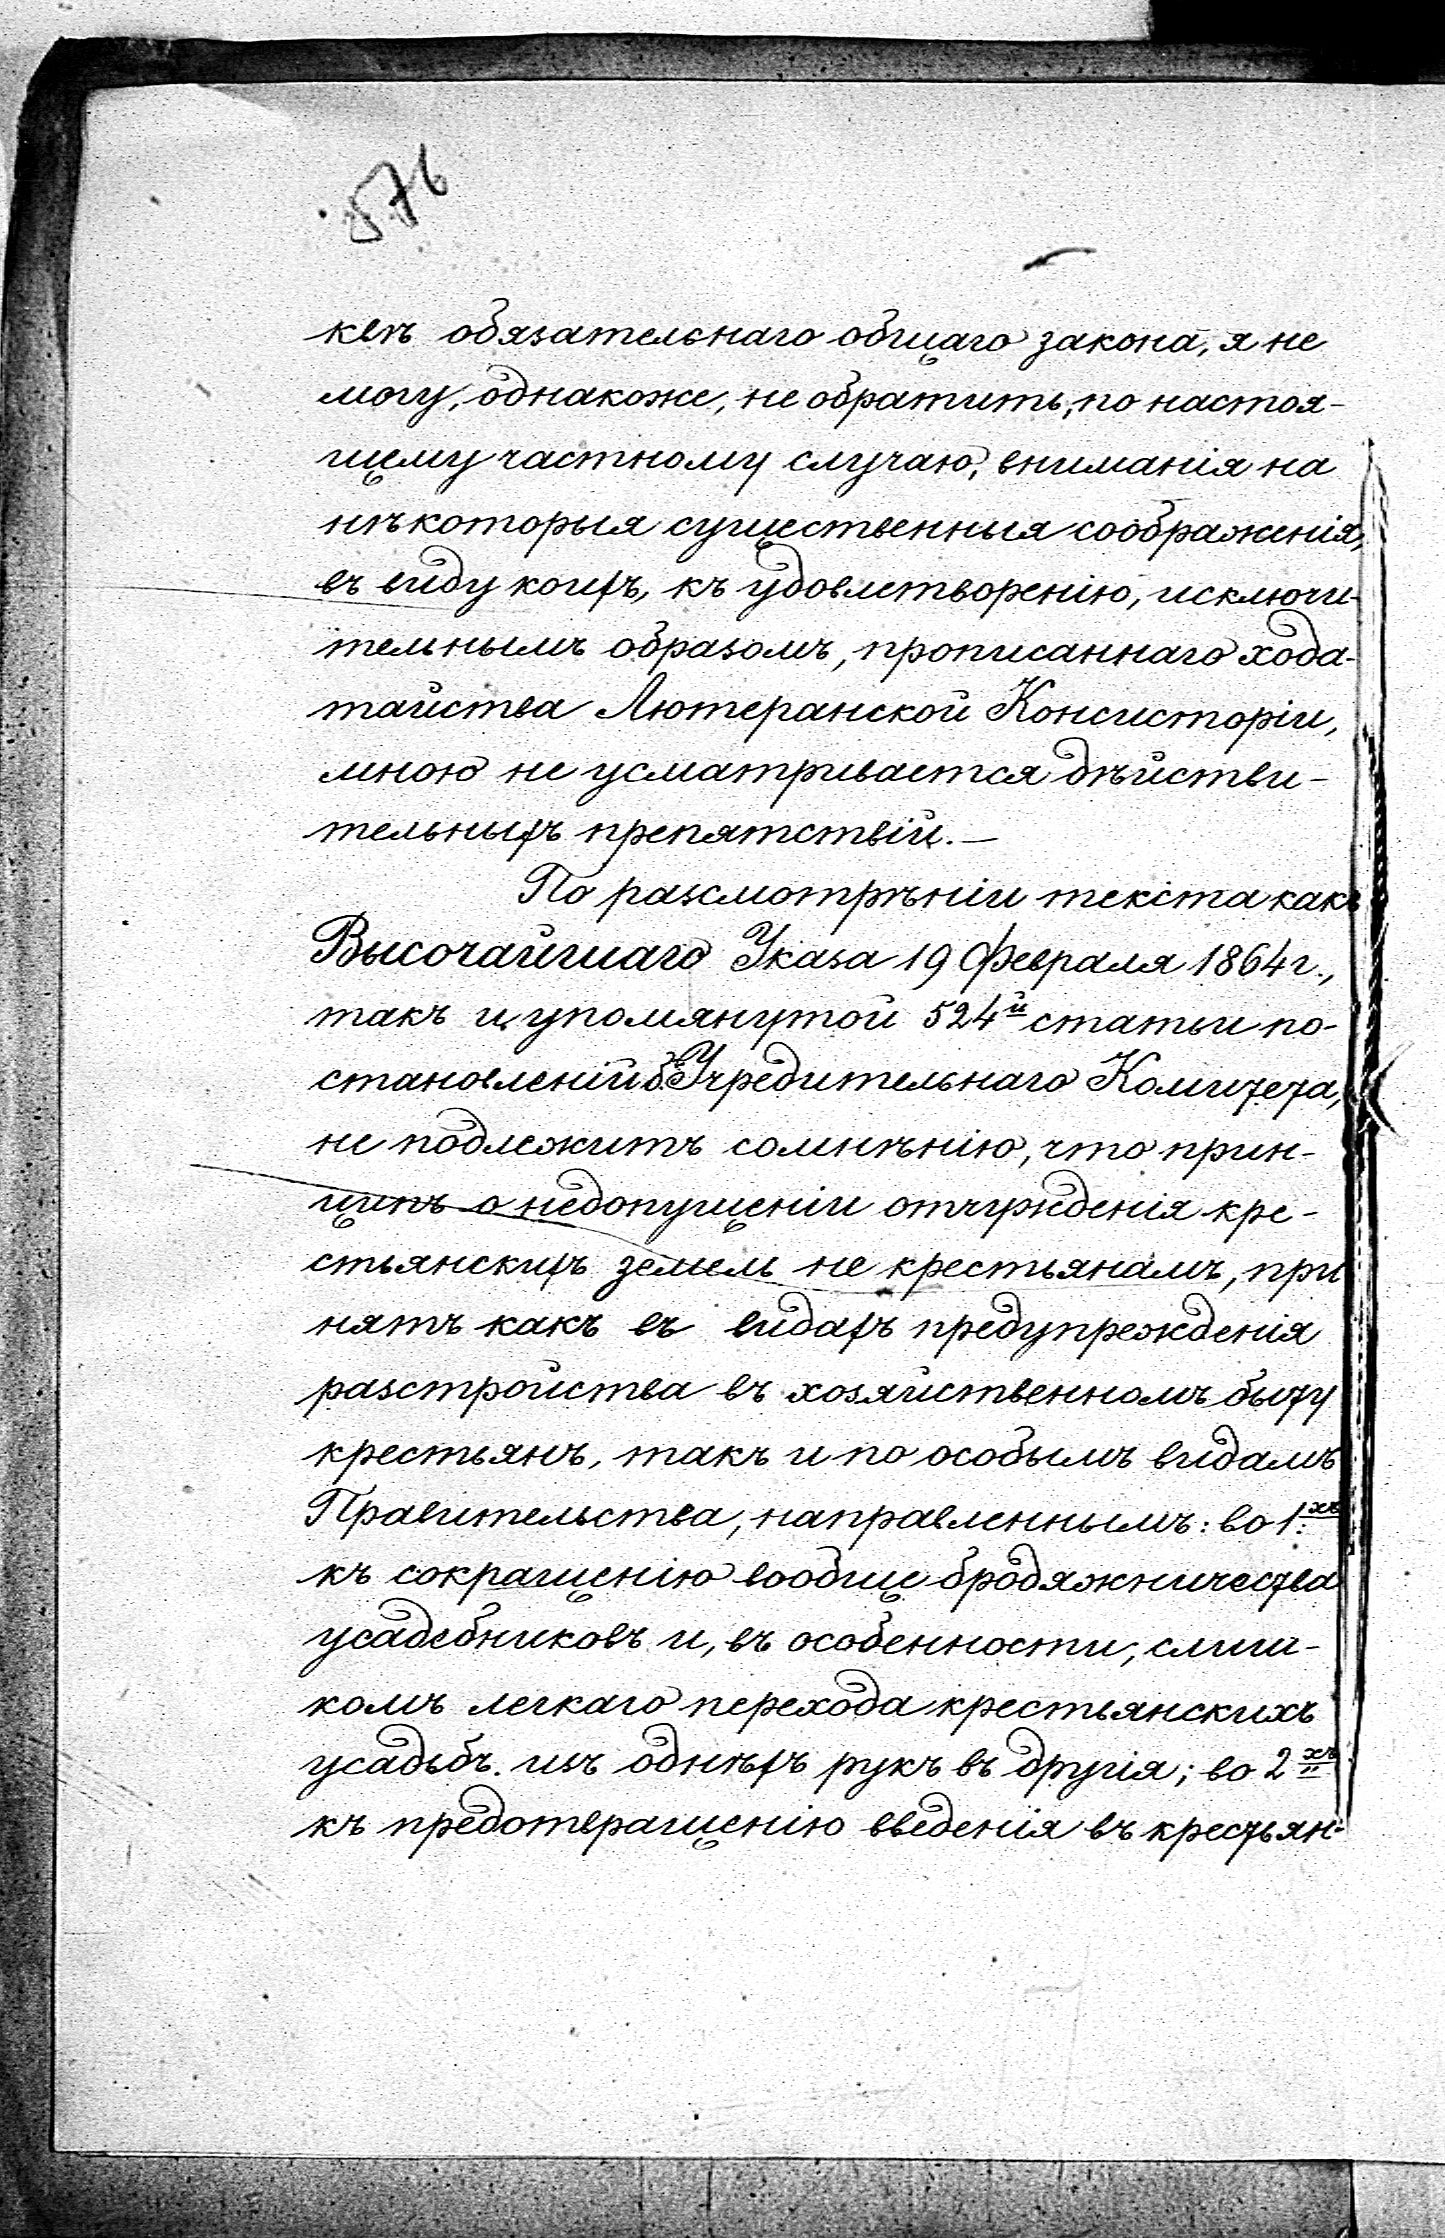 576
квѣ обязательнаго общаго закона, я не
могу, однакоже, не обратить, по настоя-
щему частному случаю, вниманія на
нѣкоторыя существенныя соображенія,
въ виду коихъ, къ удовлетворенію, исключи-
тельнымъ образомъ, прописаннаго хода-
тайства Лютеранской Консисторіи,
мною не усматривается дѣйстви-
тельныхъ препятствій.—
По разсмотрѣніи текста какъ
Высочайшаго Указа 19 Февраля 1864 г.,
такъ и упомянутой 524й статьи по-
становленій Учредительнаго Комитета,
не подлежитъ сомнѣнію, что прин-
ципъ о недопущеніи отчужденія кре-
стьянскихъ земель не крестьянамъ, при
нятъ какъ въ видахъ предупрежденія
разстройства въ хозяйственномъ быту
крестьянъ, такъ и по особымъ видамъ
Правительства, направленнымъ: во 1хъ
къ сокращенію вообще бродяжничества
усадебниковъ и, въ особенности, слиш-
комъ легкаго перехода крестьянскихъ
усадьбъ изъ однѣхъ рукъ въ другія; во 2хъ
къ предотвращенію введенія въ крестьян-